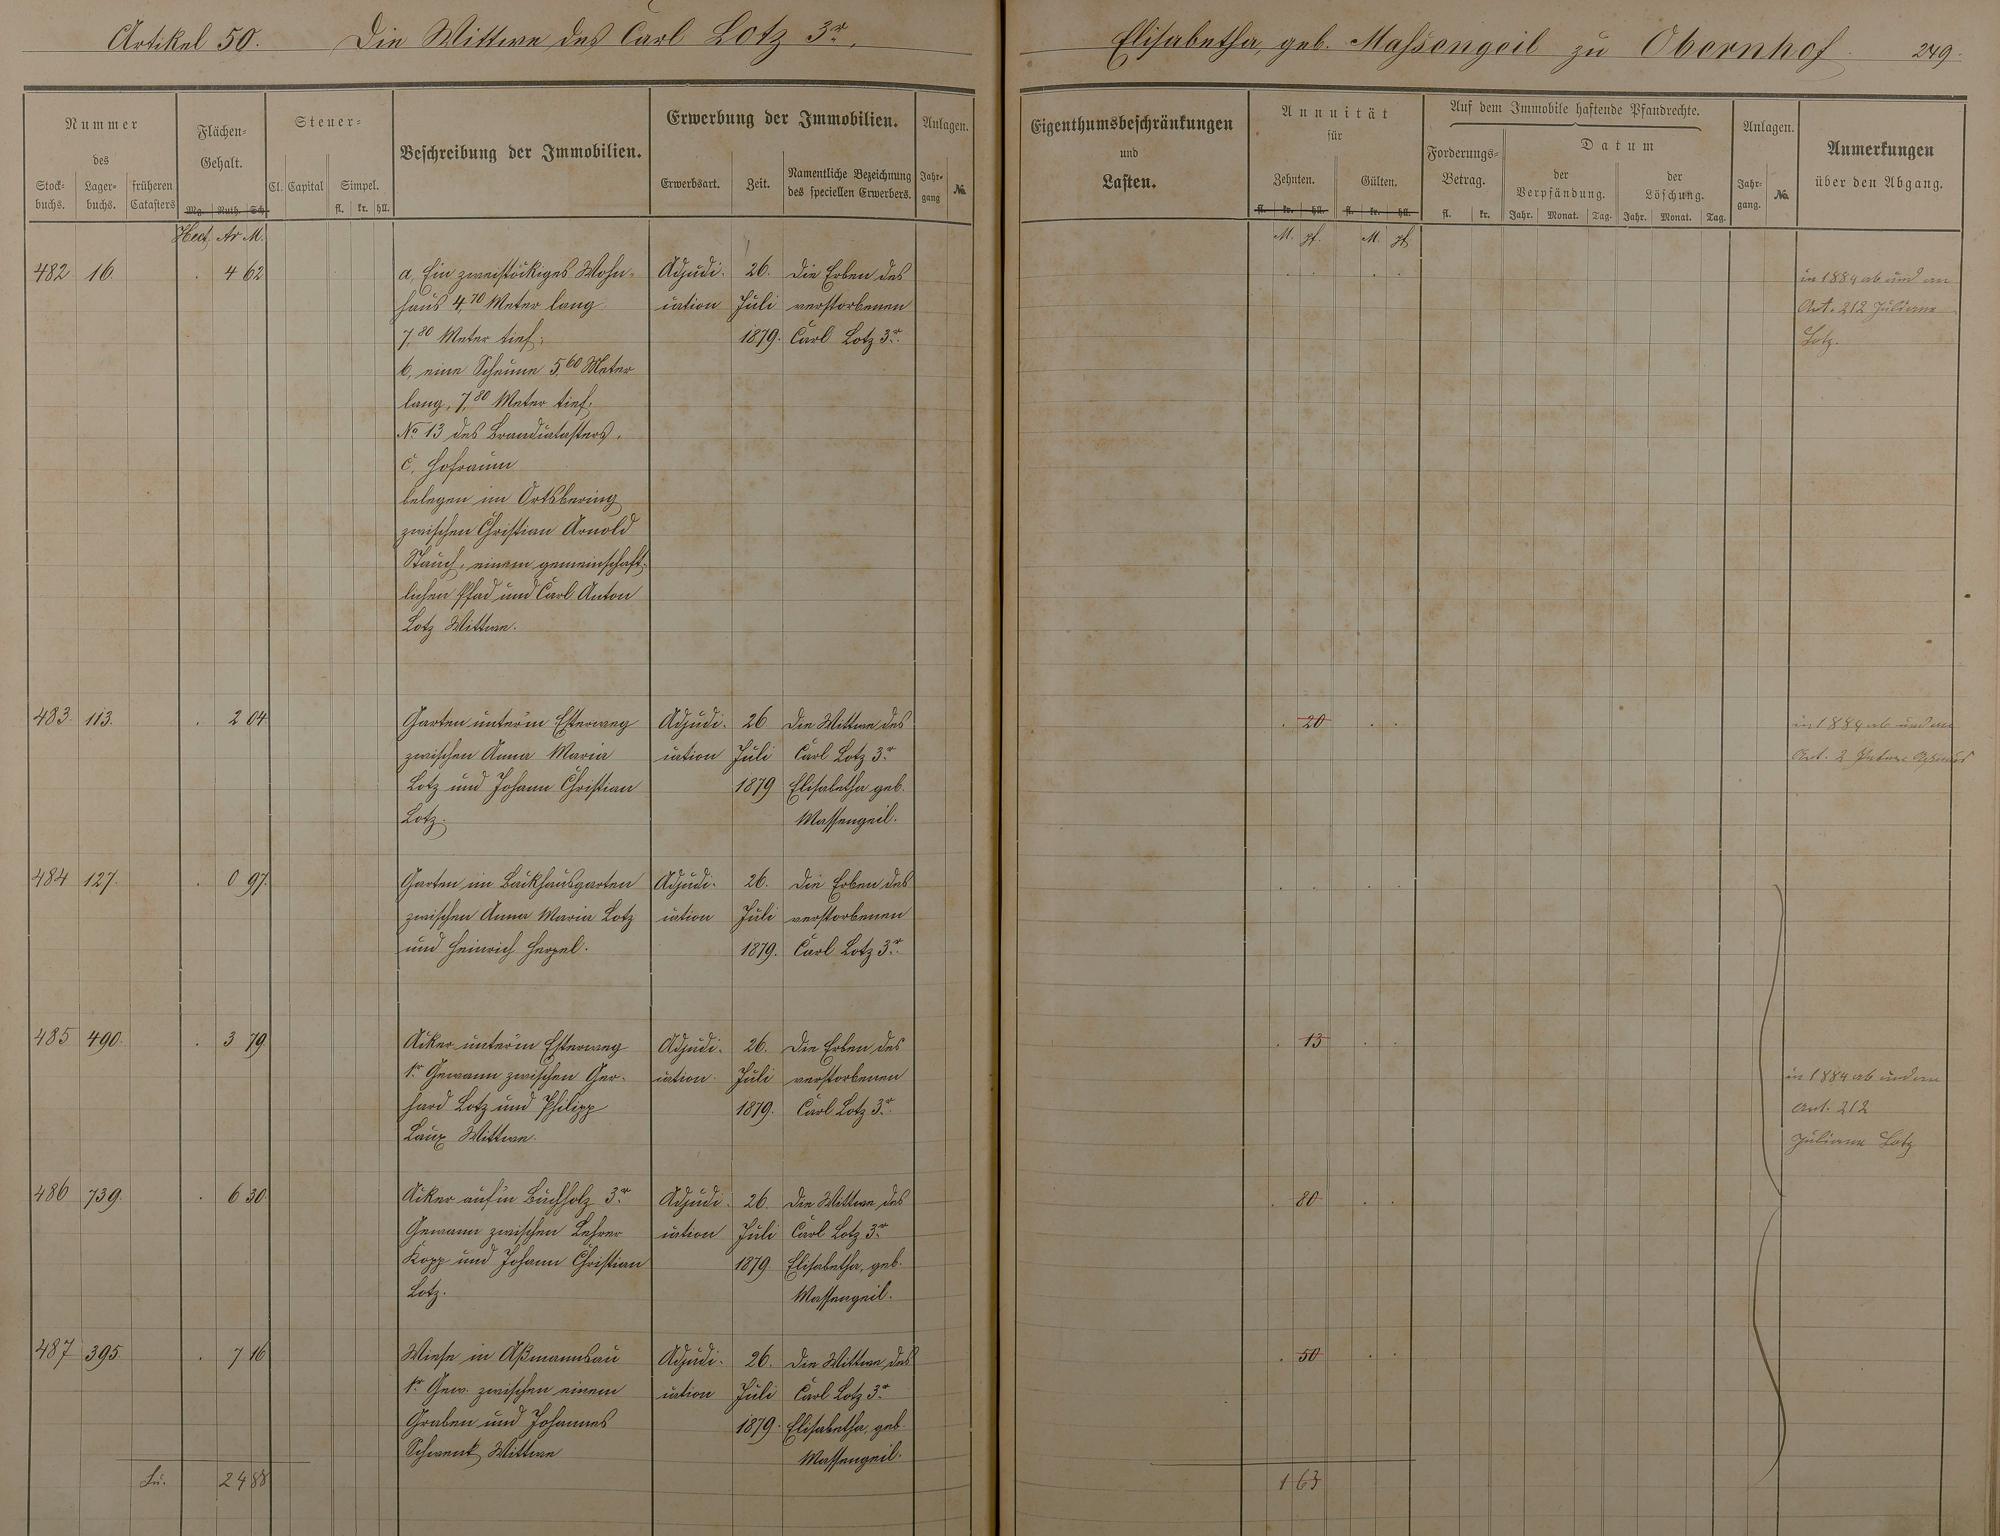 Artikel 50. Die Wittwe des Carl Lotz 3r.
Elisabetha, geb. Massengeil zu Obernhof. 249.
Nummer
des
Stock-
buchs.
Lager-
buchs.
früheren
Catasters
Flächen-
Gehalt.
Mg. Ruth. Sch.
Hect. Ar M.
Steuer-
Cl. Capital Simpel.
fl. kr. hll.
Beschreibung der Immobilien.
Erwerbung der Immobilien.
Erwerbsart. Zeit.
Namentliche Bezeichnung
des speciellen Erwerbers.
Anlagen.
Jahr-
gang
No.
Eigenthumsbeschränkungen
und
Lasten.
Annuität
für
Zehnten. Gülten.
fl. kr. hll. fl. kr. hll.
M. pf. M. pf.
Auf dem Immobile haftende Pfandrechte.
Forderungs-
Betrag.
fl. kr.
Datum
der
Verpfändung.
Jahr. Monat. Tag.
der
Löschung.
Jahr. Monat. Tag.
Anlagen.
Jahr-
gang.
No.
Anmerkungen
über den Abgang.
482 16. . 4 62
a. Ein zweistöckiges Wohn-
haus 4,70 Meter lang
7,80 Meter tief.
b. eine Scheune 5,60 Meter
lang, 7,80 Meter tief.
No 13 des Brandcatasters.
c. Hofraum
belegen im Ortsbering
zwischen Christian Arnold
Stauch, einem gemeinschaft-
lichen Pfad und Carl Anton
Lotz Wittwe.
Adjudi-
cation
26.
Juli
1879.
Die Erben des
verstorbenen
Carl Lotz 3r.
in 1884 ab und an
Art. 212 Juliane
Lotz.
483. 113. . 2 04
Garten unter'm Esterweg
zwischen Anna Maria
Lotz und Johann Christian
Lotz.
Adjudi-
cation
26.
Juli
1879
Die Wittwe des
Carl Lotz 3r
Elisabetha geb.
Massengeil.
. 20 . .
in 1884 ab und an
Art. 2
484 127. . 0 97.
Garten im Backhausgarten
zwischen Anna Maria Lotz
und Heinrich Herpel.
Adjudi-
cation
26.
Juli
1879.
Die Erben des
verstorbenen
Carl Lotz 3r.
485 490. . 3 79
Acker unter'm Esterweg
1r Gewann zwischen Ger-
hard Lotz und Philipp
Laux Wittwe.
Adjudi-
cation
26.
Juli
1879.
Die Erben des
verstorbenen
Carl Lotz 3r.
. 13 . .
in 1884 ab und an
Art. 212
Juliane Lotz
486 739. . 6 30
Acker auf'm Buchholz 3r
Gewann zwischen Lehrer
Kopp und Johann Christian
Lotz.
Adjudi-
cation
26.
Juli
1879
Die Wittwe des
Carl Lotz 3r
Elisabetha, geb.
Massengeil.
. 80 . .
487 395 . 7 16
Wiese in Aßmannsau
1r Gew. zwischen einem
Graben und Johannes
Schwenk Wittwe
Adjudi-
cation
26.
Juli
1879.
Die Wittwe des
Carl Lotz 3r
Elisabetha, geb
Massengeil.
. 50 . .
Su. 24 88
1 63